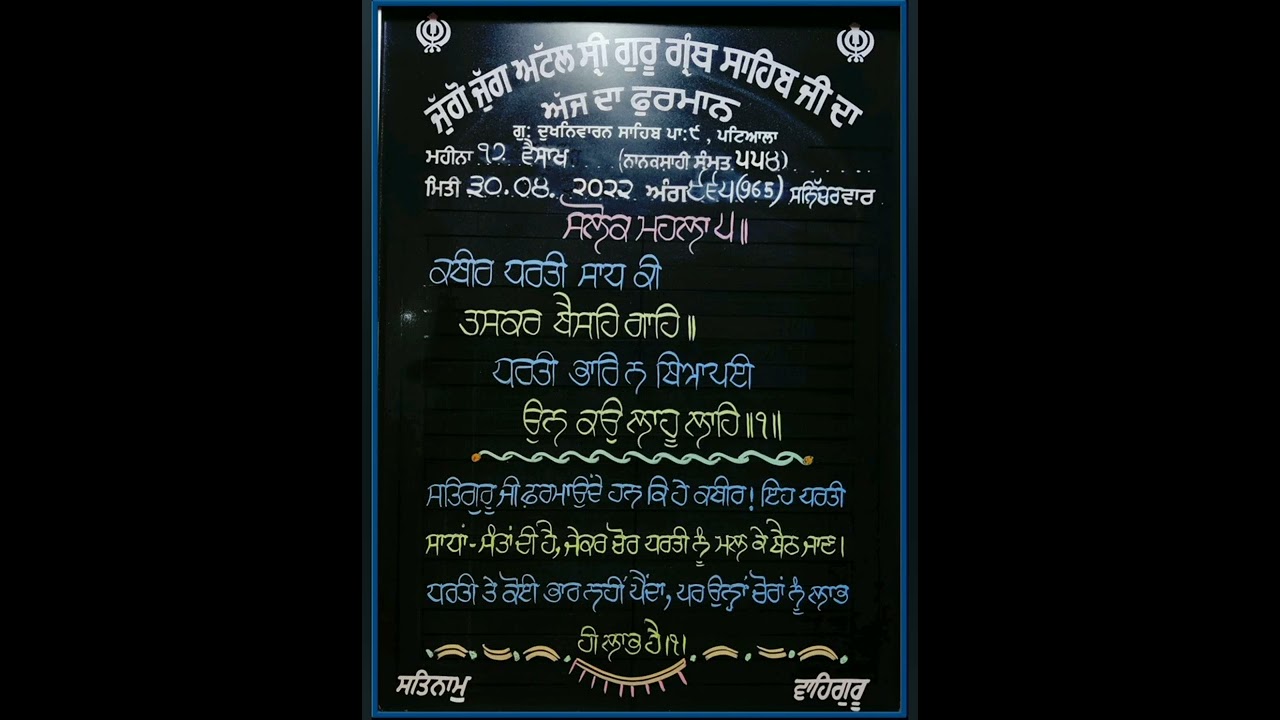 ਜੁੱਗੋ ਜੁੱਗ ਅਟੱਲ ਸ੍ਰੀ ਗੁਰੂ ਗ੍ਰੰਥ ਸਾਹਿਬ ਜੀ ਦਾ
ਅੱਜ ਦਾ ਫੁਰਮਾਨ
ਗੁ: ਦੁਖਨਿਵਾਰਨ ਸਾਹਿਬ ਪਾ:੯, ਪਟਿਆਲਾ
ਮਹੀਨਾ ੧੭ ਵੈਸਾਖ (ਨਾਨਕਸਾਹੀ ਸੰਮਤ ੫੫੪)
ਮਿਤੀ ੩੦.੦੪. ੨੦੨੨ ਅੰਗ ੯੬੫(965) ਸਨਿੱਚਰਵਾਰ
ਸਲੋਕ ਮਹਲਾ ੫॥
ਕਬੀਰ ਧਰਤੀ ਸਾਧ ਕੀ
ਤਸਕਰ ਬੈਸਹਿ ਗਾਹਿ॥
ਧਰਤੀ ਭਾਰਿ ਨ ਬਿਆਪਈ
ਉਨ ਕਉ ਲਾਹੂ ਲਾਹਿ॥੧॥
ਸਤਿਗੁਰੂ ਜੀ ਫ਼ਰਮਾਉਂਦੇ ਹਨ ਕਿ ਹੇ ਕਬੀਰ! ਇਹ ਧਰਤੀ
ਸਾਧਾਂ-ਸੰਤਾਂ ਦੀ ਹੈ, ਜੇਕਰ ਚੋਰ ਧਰਤੀ ਨੂੰ ਮਲ ਕੇ ਬੈਠ ਜਾਣ।
ਧਰਤੀ ਤੇ ਕੋਈ ਭਾਰ ਨਹੀਂ ਪੈਂਦਾ, ਪਰ ਉਨ੍ਹਾਂ ਚੋਰਾਂ ਨੂੰ ਲਾਭ
ਹੀ ਲਾਭ ਹੈ।੧।
ਸਤਿਨਾਮੁ ਵਾਹਿਗੁਰੂ